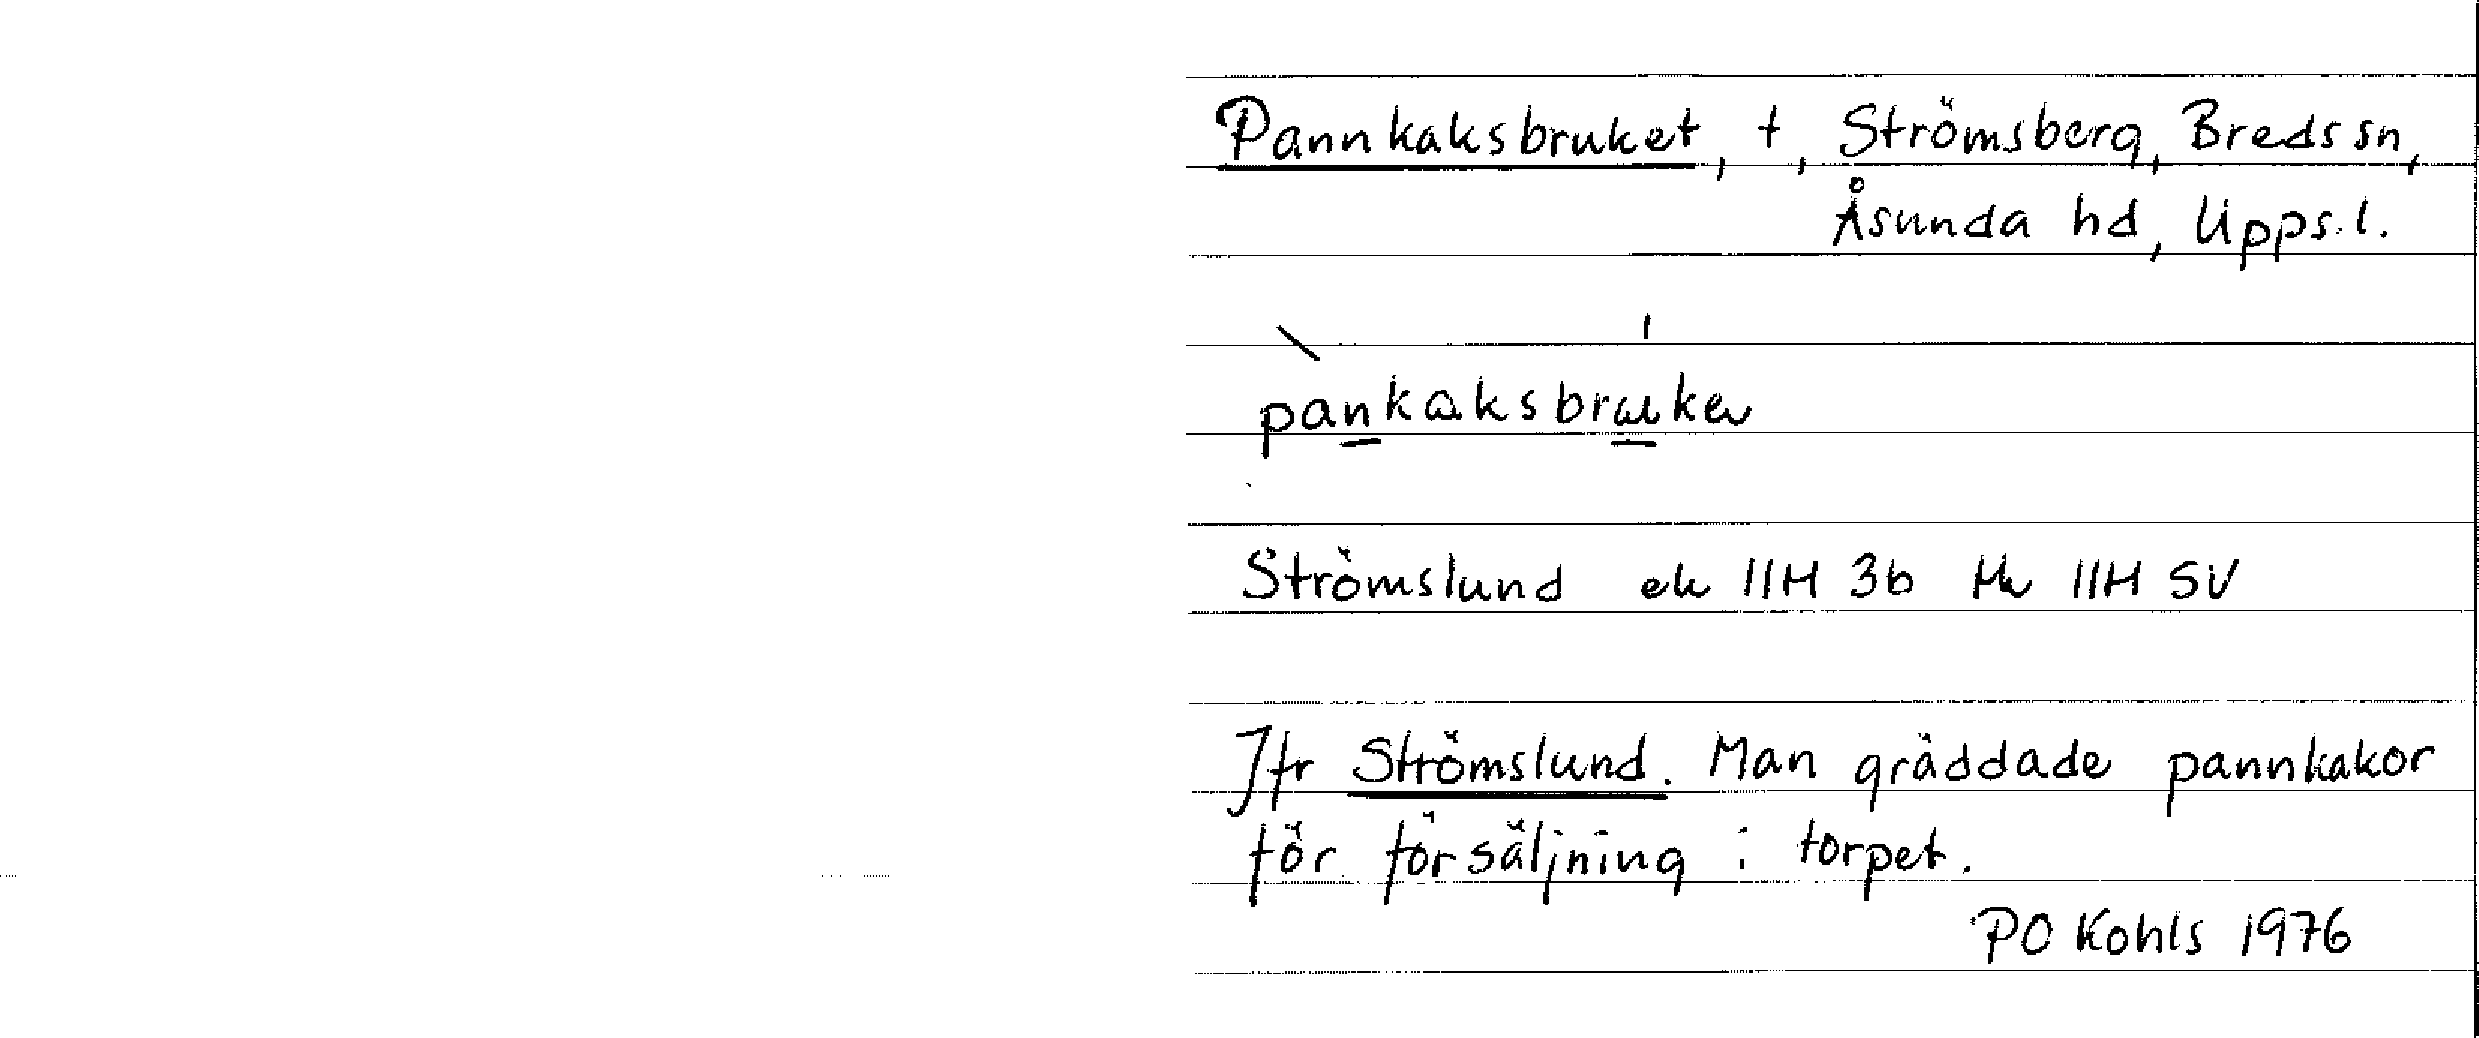 Pannkaksbruket, t, Strömsberg, Breds sn,
Åsunda hd, Upps. l.
pankaksbruke
Strömslund ek 11H 3b Hk 11H SV
Jfr Strömslund. Man gräddade pannkakor
för försäljning i torpet.
PO Kohls 1976